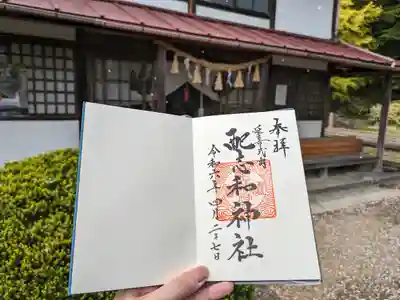 奉拝
配志和神社
令和六年四月二十七日